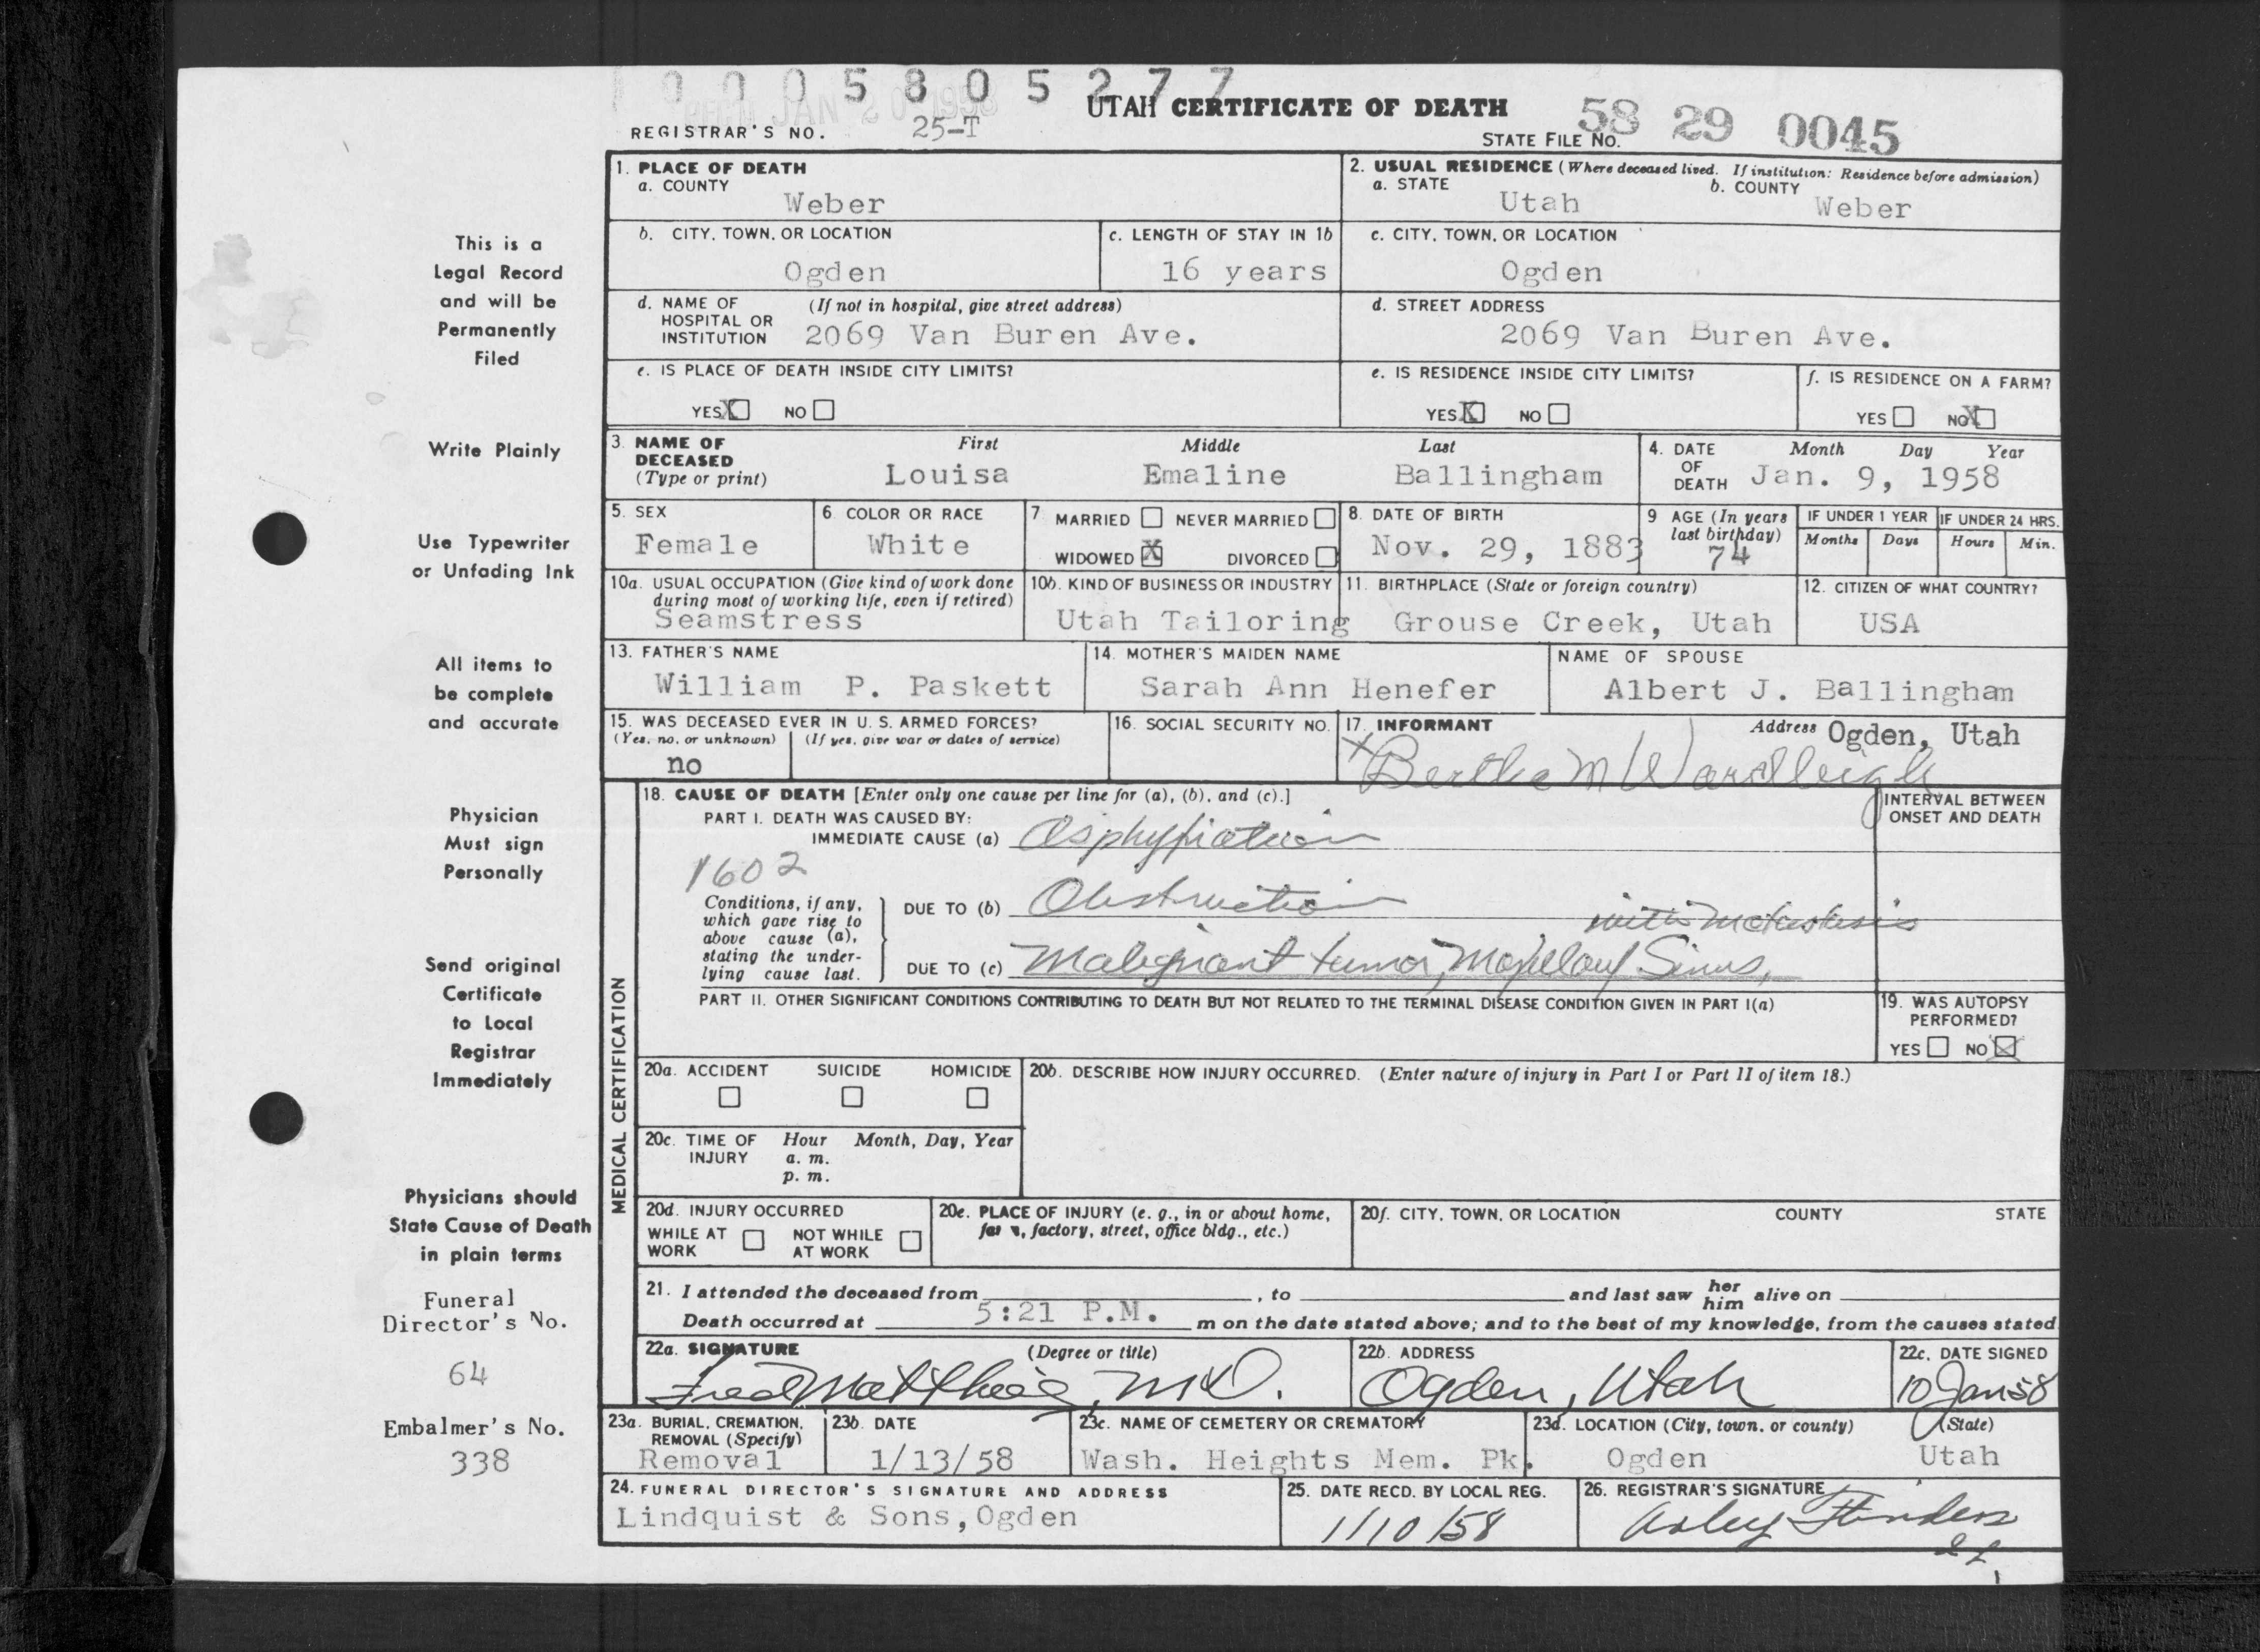 1 0 0 0 5 8 0 5 2 7 7
REC'D JAN 20 1958
UTAH CERTIFICATE OF DEATH
REGISTRAR'S NO. 25-T
STATE FILE NO. 58 29 0045
1. PLACE OF DEATH
a. COUNTY
Weber
2. USUAL RESIDENCE (Where deceased lived. If institution: Residence before admission)
a. STATE b. COUNTY
Utah Weber
b. CITY, TOWN, OR LOCATION
Ogden
c. LENGTH OF STAY IN 1b
16 years
c. CITY, TOWN, OR LOCATION
Ogden
d. NAME OF (If not in hospital, give street address)
HOSPITAL OR
INSTITUTION 2069 Van Buren Ave.
d. STREET ADDRESS
2069 Van Buren Ave.
e. IS PLACE OF DEATH INSIDE CITY LIMITS?
YES X NO
e. IS RESIDENCE INSIDE CITY LIMITS?
YES X NO
f. IS RESIDENCE ON A FARM?
YES NO X
3. NAME OF DECEASED (Type or print)
First Middle Last
Louisa Emaline Ballingham
4. DATE OF DEATH
Month Day Year
Jan. 9, 1958
5. SEX
Female
6. COLOR OR RACE
White
7. MARRIED NEVER MARRIED
WIDOWED X DIVORCED
8. DATE OF BIRTH
Nov. 29, 1883
9 AGE (In years
last birthday)
74
IF UNDER 1 YEAR IF UNDER 24 HRS.
Months Days Hours Min.
10a. USUAL OCCUPATION (Give kind of work done
during most of working life, even if retired)
Seamstress
10b. KIND OF BUSINESS OR INDUSTRY
Utah Tailoring
11. BIRTHPLACE (State or foreign country)
Grouse Creek, Utah
12. CITIZEN OF WHAT COUNTRY?
USA
13. FATHER'S NAME
William P. Paskett
14. MOTHER'S MAIDEN NAME
Sarah Ann Henefer
NAME OF SPOUSE
Albert J. Ballingham
15. WAS DECEASED EVER IN U. S. ARMED FORCES?
(Yes, no, or unknown) (If yes, give war or dates of service)
no
16. SOCIAL SECURITY NO.
17. INFORMANT Address Ogden, Utah
X Bertha M Wardleigh
MEDICAL CERTIFICATION
18. CAUSE OF DEATH [Enter only one cause per line for (a), (b), and (c).]
INTERVAL BETWEEN
ONSET AND DEATH
PART I. DEATH WAS CAUSED BY:
IMMEDIATE CAUSE (a) Asphyxiation
1602
Conditions, if any,
which gave rise to
above cause (a),
stating the under-
lying cause last.
DUE TO (b) Obstruction
with metastasis
DUE TO (c) Malignant tumor, Maxillary Sinus,
PART II. OTHER SIGNIFICANT CONDITIONS CONTRIBUTING TO DEATH BUT NOT RELATED TO THE TERMINAL DISEASE CONDITION GIVEN IN PART I(a)
19. WAS AUTOPSY
PERFORMED?
YES NO X
20a. ACCIDENT SUICIDE HOMICIDE
20b. DESCRIBE HOW INJURY OCCURRED. (Enter nature of injury in Part I or Part II of item 18.)
20c. TIME OF Hour Month, Day, Year
INJURY a. m.
p. m.
20d. INJURY OCCURRED
WHILE AT WORK NOT WHILE AT WORK
20e. PLACE OF INJURY (e. g., in or about home,
farm, factory, street, office bldg., etc.)
20f. CITY, TOWN, OR LOCATION COUNTY STATE
21. I attended the deceased from , to and last saw her him alive on
Death occurred at 5:21 P.M. m on the date stated above; and to the best of my knowledge, from the causes stated
22a. SIGNATURE (Degree or title)
Fred Matthies, MD.
22b. ADDRESS
Ogden, Utah
22c. DATE SIGNED
10 Jan 58
23a. BURIAL, CREMATION,
REMOVAL (Specify)
Removal
23b. DATE
1/13/58
23c. NAME OF CEMETERY OR CREMATORY
Wash. Heights Mem. Pk.
23d. LOCATION (City, town, or county) (State)
Ogden Utah
24. FUNERAL DIRECTOR'S SIGNATURE AND ADDRESS
Lindquist & Sons, Ogden
25. DATE RECD. BY LOCAL REG.
1/10/58
26. REGISTRAR'S SIGNATURE
This is a
Legal Record
and will be
Permanently
Filed
Write Plainly
Use Typewriter
or Unfading Ink
All items to
be complete
and accurate
Physician
Must sign
Personally
Send original
Certificate
to Local
Registrar
Immediately
Physicians should
State Cause of Death
in plain terms
Funeral
Director's No.
64
Embalmer's No.
338